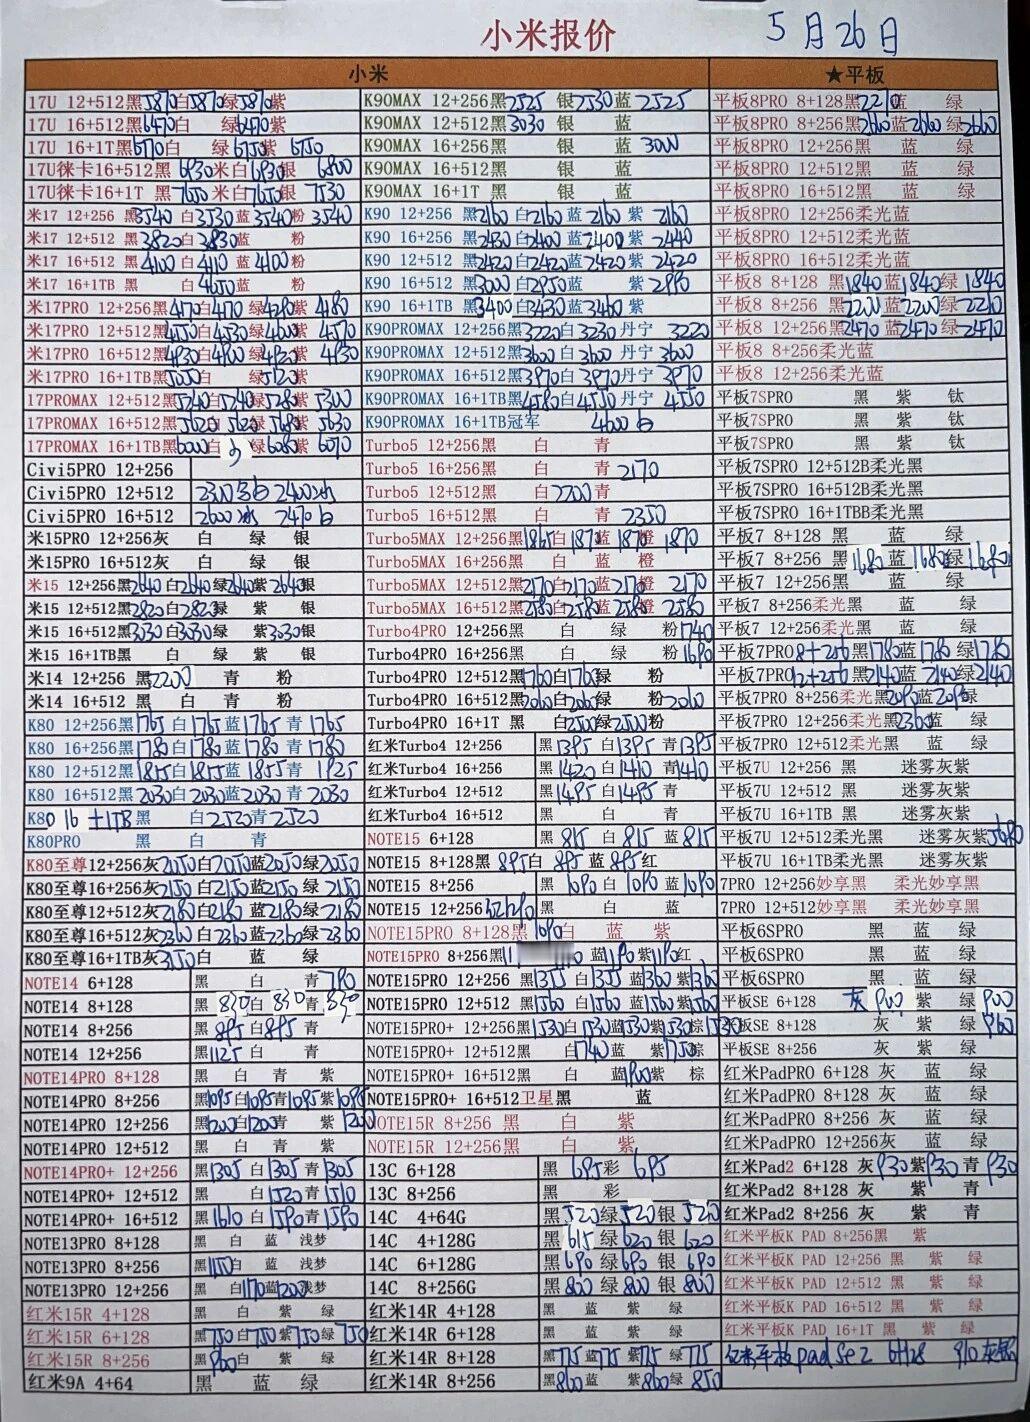 小米报价 5月26日
小米
★平板
17U 12+512黑5870白5870绿5870紫
17U 16+512黑6470白 绿6470紫
17U 16+1T黑6770白 绿6750紫 6750
17U徕卡16+512黑 6930米白6930银 6800
17U徕卡16+1T 黑 7650米白7650银 7530
米17 12+256 黑3540 白3530蓝3540粉 3540
米17 12+512 黑3820白3830蓝 粉
米17 16+512 黑4100白4110蓝4100粉
米17 16+1TB 黑 白4650蓝 粉
米17PRO 12+256黑4170白4170 绿4280紫 4180
米17PRO 12+512黑4550白4530绿4600紫 4570
米17PRO 16+512黑4930白4900绿4920紫 4930
米17PRO 16+1TB黑5050白 绿5120紫
17PROMAX 12+512黑5240白5240绿5280紫 5300
17PROMAX 16+512黑5620白5620绿5680紫 5630
17PROMAX 16+1TB黑6000白 绿6080紫 6070
Civi5PRO 12+256
Civi5PRO 12+512 2300 白 2400冰
Civi5PRO 16+512 2600冰 2470白
米15PRO 12+256灰 白 绿 银
米15PRO 16+512灰 白 绿 银
米15 12+256黑2640白2640绿2640紫2640银
米15 12+512黑2820白2820绿 紫 银
米15 16+512黑3030白3030绿 紫3030银
米15 16+1TB黑 白 绿 紫 银
米14 12+256 黑2200 青 粉
米14 16+512 黑 白 青 粉
K80 12+256黑1765白1765蓝1765青 1765
K80 16+256黑1780白1780蓝1780青 1780
K80 12+512黑1855白1855蓝1855青 1925
K80 16+512黑2030白2030蓝2030青 2030
K80 16+1TB黑 白2520青2520
K80PRO 黑 白 青
K80至尊12+256灰2050白2050蓝2050绿2050
K80至尊16+256灰2150白2150蓝2150绿 2150
K80至尊12+512灰2180白2180蓝2180绿 2180
K80至尊16+512灰2360白2360蓝2360绿2360
K80至尊16+1TB灰3550白 蓝 绿
NOTE14 6+128 黑 白 青790
NOTE14 8+128 黑830白830青830
NOTE14 8+256 黑895白895青
NOTE14 12+256 黑1125白 青
NOTE14PRO 8+128 黑 白 青 紫
NOTE14PRO 8+256 黑1095白1095青1095紫1095
NOTE14PRO 12+256 黑1200白1200青 紫1200
NOTE14PRO 12+512 黑 白 青 紫
NOTE14PRO+ 12+256 黑1305白1305青1305
NOTE14PRO+ 12+512 黑 白1520青1510
NOTE14PRO+ 16+512 黑1610白1590青1590
NOTE13PRO 8+128 黑 白 蓝 浅梦
NOTE13PRO 8+256 黑1150白 蓝 浅梦
NOTE13PRO 12+256 黑 白1170蓝1200浅梦
红米15R 4+128 黑 白 紫 绿
红米15R 6+128 黑750白750紫750绿750
红米15R 8+256 黑900白 紫 绿
红米9A 4+64 黑 蓝 绿
K90MAX 12+256黑2525 银2530蓝 2525
K90MAX 12+512黑3030 银 蓝
K90MAX 16+256黑 银 蓝 3000
K90MAX 16+512黑 银 蓝
K90MAX 16+1T 黑 银 蓝
K90 12+256 黑2160白2160蓝 2160紫 2160
K90 16+256 黑2430白2400蓝2400紫 2440
K90 12+512 黑2420白2420蓝2420紫 2420
K90 16+512 黑3000白2950蓝 紫 2990
K90 16+1TB 黑3400白3430蓝3460紫
K90PROMAX 12+256黑3220白3230丹宁 3220
K90PROMAX 12+512黑3600白3600丹宁 3600
K90PROMAX 16+512黑3970白3970丹宁 3970
K90PROMAX 16+1TB黑4580白4550丹宁 4550
K90PROMAX 16+1TB冠军 4600白
Turbo5 12+256黑 白 青
Turbo5 16+256黑 白 青2170
Turbo5 12+512黑 白2200青
Turbo5 16+512黑 白 青 2350
Turbo5MAX 12+256黑1865白1870蓝1870橙 1870
Turbo5MAX 16+256黑 白 蓝 橙
Turbo5MAX 12+512黑2170白2170蓝2170橙 2170
Turbo5MAX 16+512黑2580白2580蓝2580橙 2580
Turbo4PRO 12+256黑 白 绿 粉1740
Turbo4PRO 16+256黑 白 绿 粉1690
Turbo4PRO 12+512黑1760白1760绿 粉
Turbo4PRO 16+512黑2060白2060绿 粉2060
Turbo4PRO 16+1T 黑 白2500绿2500粉
红米Turbo4 12+256 黑1395白1395青1395
红米Turbo4 16+256 黑1420白1410青1410
红米Turbo4 12+512 黑1495白1495青
红米Turbo4 16+512 黑 白 青
NOTE15 6+128 黑 815白 815蓝 815
NOTE15 8+128黑 895白 895 蓝 895红
NOTE15 8+256 黑1090白1090蓝1090
NOTE15 12+256 黑 白 蓝
NOTE15PRO 8+128黑1090白 蓝 紫
NOTE15PRO 8+256黑 蓝1190紫1190红
NOTE15PRO 12+256 黑1355白1355蓝1360紫1360
NOTE15PRO 12+512 黑1560白1560蓝1560紫1560
NOTE15PRO+ 12+256黑1530白1530蓝1530紫1530棕1530
NOTE15PRO+ 12+512黑 白1740蓝 紫1750棕
NOTE15PRO+ 16+512黑 白 蓝1900紫 棕
NOTE15PRO+ 16+512卫星黑 蓝
NOTE15R 8+256 黑 白 紫
NOTE15R 12+256黑 白 紫
13C 6+128 黑 695彩 695
13C 8+256 黑 彩
14C 4+64G 黑520绿520银 520
14C 4+128G 黑615绿620银 620
14C 6+128G 黑690绿690银 690
14C 8+256G 黑800绿800银 800
红米14R 4+128 黑 蓝 紫 绿
红米14R 6+128 黑 蓝 紫 绿
红米14R 8+128 黑715蓝715紫715绿715
红米14R 8+256 黑860蓝 紫860绿 850
平板8PRO 8+128黑2270蓝 绿
平板8PRO 8+256黑2660蓝2660绿2660
平板8PRO 12+256黑 蓝 绿
平板8PRO 16+512黑 蓝 绿
平板8PRO 16+512黑 蓝 绿
平板8PRO 12+256柔光蓝
平板8PRO 12+512柔光蓝
平板8PRO 16+512柔光蓝
平板8 8+128 黑1840蓝1840绿1840
平板8 8+256 黑2200蓝2200绿2210
平板8 12+256黑2470蓝2470绿2470
平板8 8+256柔光蓝
平板8 12+256柔光蓝
平板7SPRO 黑 紫 钛
平板7SPRO 黑 紫 钛
平板7SPRO 黑 紫 钛
平板7SPRO 12+512B柔光黑
平板7SPRO 16+512B柔光黑
平板7SPRO 16+1TBB柔光黑
平板7 8+128 黑 蓝 绿
平板7 8+256 黑1680蓝1680绿1680
平板7 12+256黑 蓝 绿
平板7 8+256柔光黑 蓝 绿
平板7 12+256柔光黑 蓝 绿
平板7PRO8+256黑1780蓝1780绿1780
平板7PRO12+256黑2140蓝2140绿2140
平板7PRO 8+256柔光黑2090蓝2090绿
平板7PRO 12+256柔光黑2360蓝 绿
平板7PRO 12+512柔光黑 蓝 绿
平板7U 12+256 黑 迷雾灰紫
平板7U 12+512黑 迷雾灰紫
平板7U 16+1TB 黑 迷雾灰紫
平板7U 12+512柔光黑 迷雾灰紫5680
平板7U 16+1TB柔光黑 迷雾灰紫
7PRO 12+256妙享黑 柔光妙享黑
7PRO 12+512妙享黑 柔光妙享黑
平板6SPRO 黑 蓝 绿
平板6SPRO 黑 蓝 绿
平板6SPRO 黑 蓝 绿
平板SE 6+128 灰900紫 绿900
平板SE 8+128 灰 紫 绿960
平板SE 8+256 灰 紫 绿
红米PadPRO 6+128 灰 蓝 绿
红米PadPRO 8+128灰 蓝 绿
红米PadPRO 8+256灰 蓝 绿
红米PadPRO 12+256灰 蓝 绿
红米Pad2 6+128 灰930紫930青930
红米Pad2 8+128 灰 紫 青
红米Pad2 8+256 灰 紫 青
红米平板K PAD 8+256黑 紫
红米平板K PAD 12+256 黑 紫 绿
红米平板K PAD 12+512 黑 紫 绿
红米平板K PAD 16+512 黑 紫 绿
红米平板K PAD 16+1T 黑 紫 绿
红米平板pad Se2 6+128 910灰